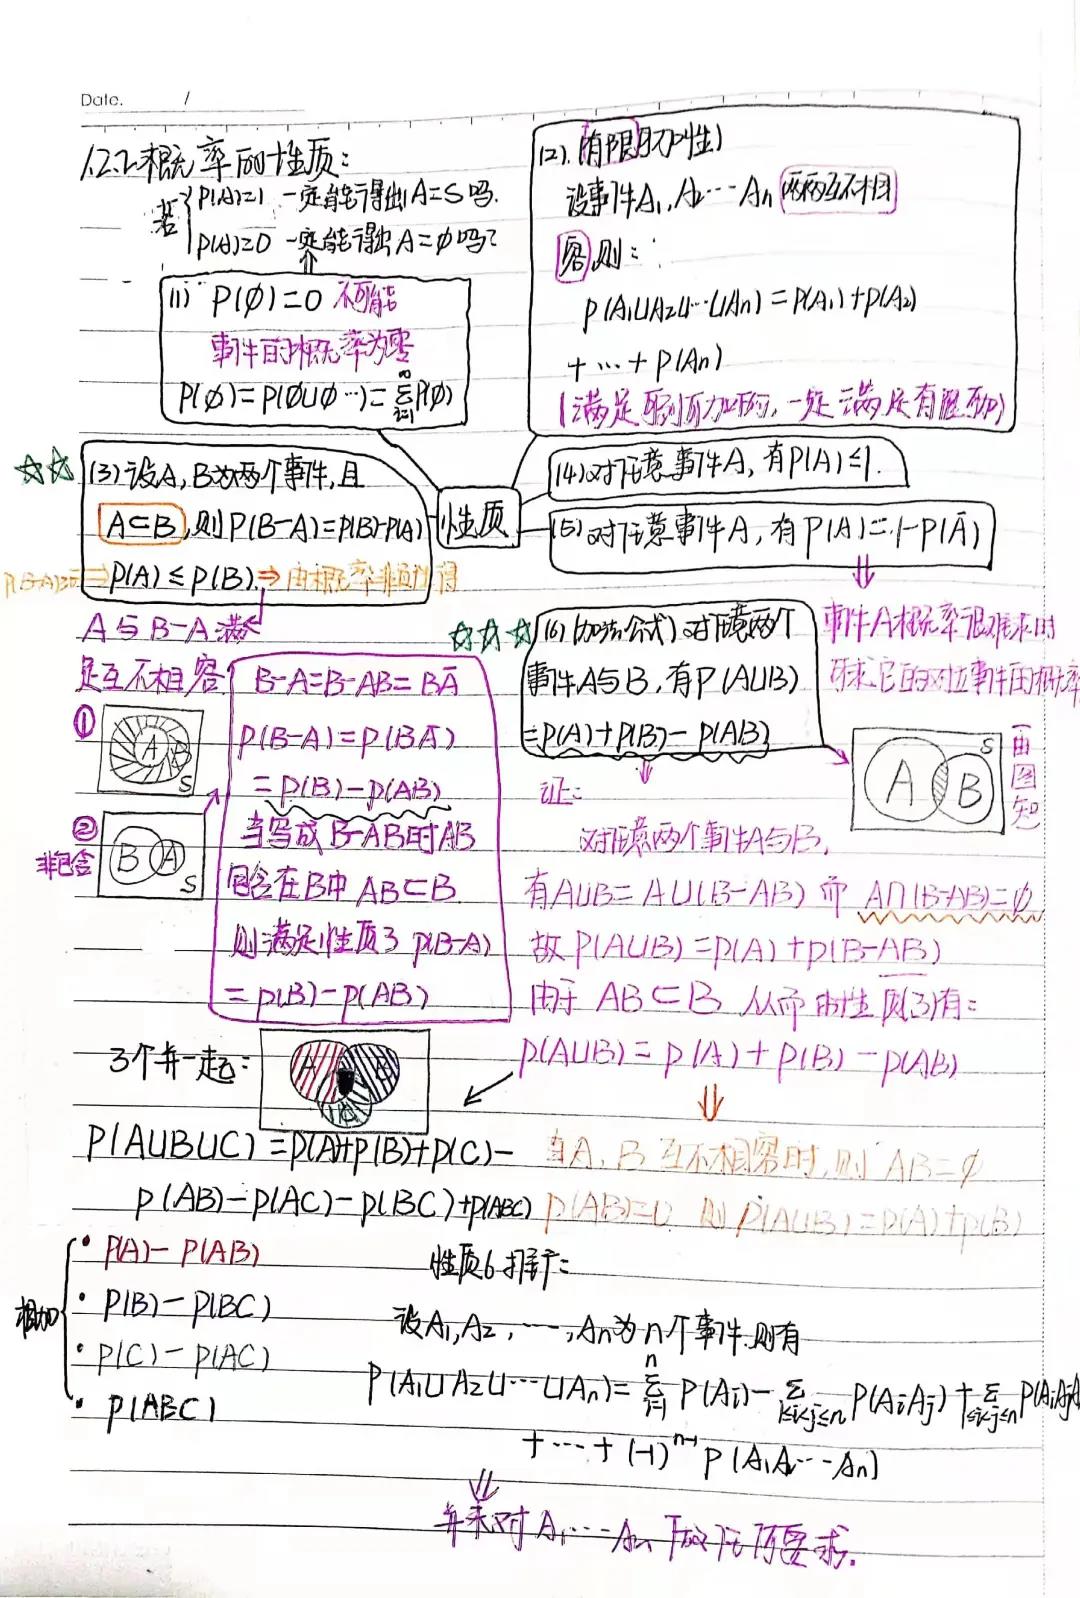 Date. /
1.2.2概率的性质:
若 P(A)=1 一定能得出A=S吗.
P(A)=0 一定能得出A=∅吗?
(1) P(∅)=0 不可能
事件的概率为零
P(∅)=P(∅∪∅…)=∑P(∅)
∞
i=1
(2).(有限可加性)
设事件A₁,A₂…An 两两互不相
容,则:
P(A₁∪A₂∪…∪An)=P(A₁)+P(A₂)
+…+P(An)
(满足可列可加的,一定满足有限可加)
☆☆
(3)设A,B为两个事件,且
A⊂B,则P(B-A)=P(B)-P(A)
P(B-A)≥0⇒P(A)≤P(B).⇒由概率非负性得
性质
(4)对任意事件A,有P(A)≤1.
(5)对任意事件A,有P(A)=1-P(Ā)
事件A概率很难求时
可求它的对立事件的概率
A与B-A满
足互不相容
B-A=B-AB=BĀ
P(B-A)=P(BĀ)
=P(B)-P(AB)
当写成B-AB时AB
包含在B中 AB⊂B
则满足性质3 P(B-A)
=P(B)-P(AB)
①
A B S
②
非包含
B A S
☆☆☆
(6)(加法公式)对任意两个
事件A与B,有P(A∪B)
=P(A)+P(B)-P(AB)
A B S
由图知
证:
对任意两个事件A与B,
有A∪B=A∪(B-AB)而 A∩(B-AB)=∅
故P(A∪B)=P(A)+P(B-AB)
由于 AB⊂B 从而由性质(3)有:
P(A∪B)=P(A)+P(B)-P(AB)
3个并一起:
P(A∪B∪C)=P(A)+P(B)+P(C)-
P(AB)-P(AC)-P(BC)+P(ABC)
当A,B互不相容时,则 AB=∅
P(AB)=0 则P(A∪B)=P(A)+P(B)
相加
• P(A)-P(AB)
• P(B)-P(BC)
• P(C)-P(AC)
• P(ABC)
性质6推广:
设A₁,A₂,…,An为n个事件.则有
P(A₁∪A₂∪…∪An)=∑P(Ai)-∑P(AiAj)+∑P(AiAjA
n
i=1
1≤i<j≤n
+…+(-1)ⁿ⁻¹P(A₁A₂…An)
并未对A₁…An
任何要求.